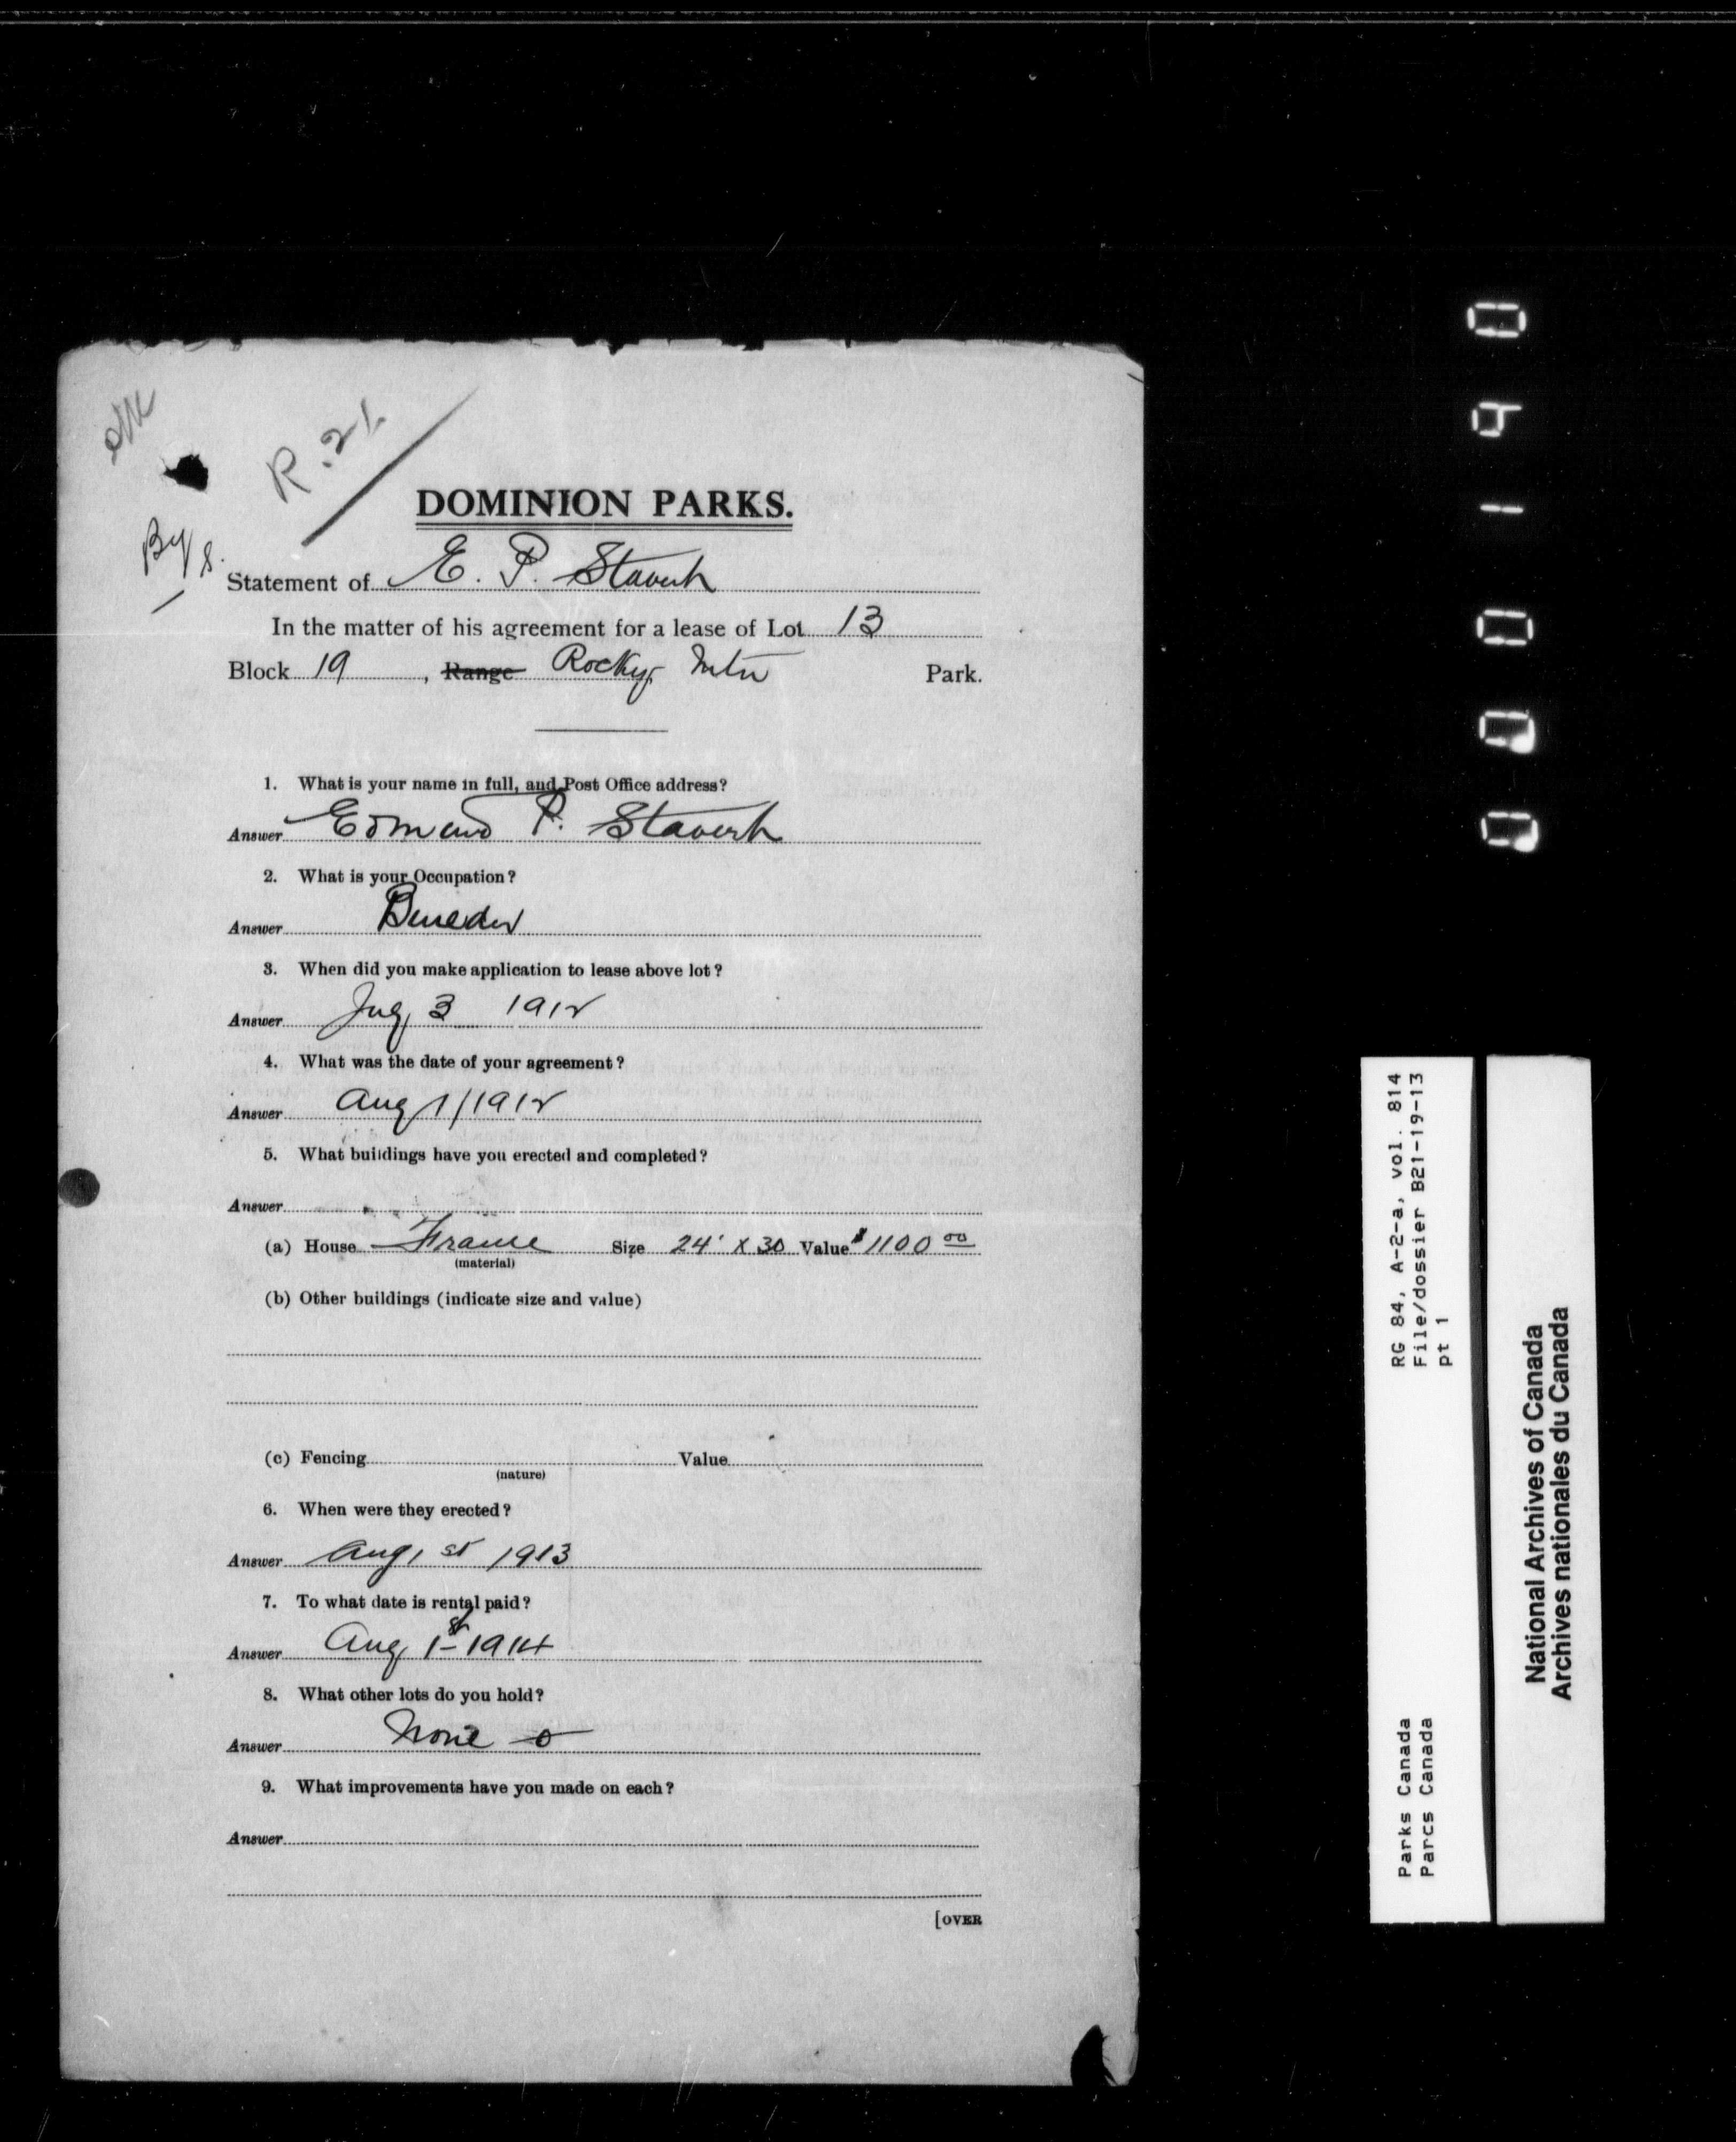 R. 21.
DOMINION PARKS.
Statement of E. P. Stavert
In the matter of his agreement for a lease of Lot 13
Block 19, Range Rocky Mtn Park.
1. What is your name in full, and Post Office address?
Answer P. Stavert
2. What is your Occupation?
Answer
3. When did you make application to lease above lot?
Answer 3 1912
4. What was the date of your agreement?
Answer Aug 1/1912
5. What buildings have you erected and completed?
Answer
(a) House Frame Size 24' x 30 Value $1100 00
(material)
(b) Other buildings (indicate size and value)
(c) Fencing Value
(nature)
6. When were they erected?
Answer Aug 1st 1913
7. To what date is rental paid?
Answer Aug 1st 1914
8. What other lots do you hold?
Answer None
9. What improvements have you made on each?
Answer
[OVER
RG 84, A-2-a, vol. 814
File/dossier B21-19-13
pt 1
Parks Canada
Parcs Canada
National Archives of Canada
Archives nationales du Canada